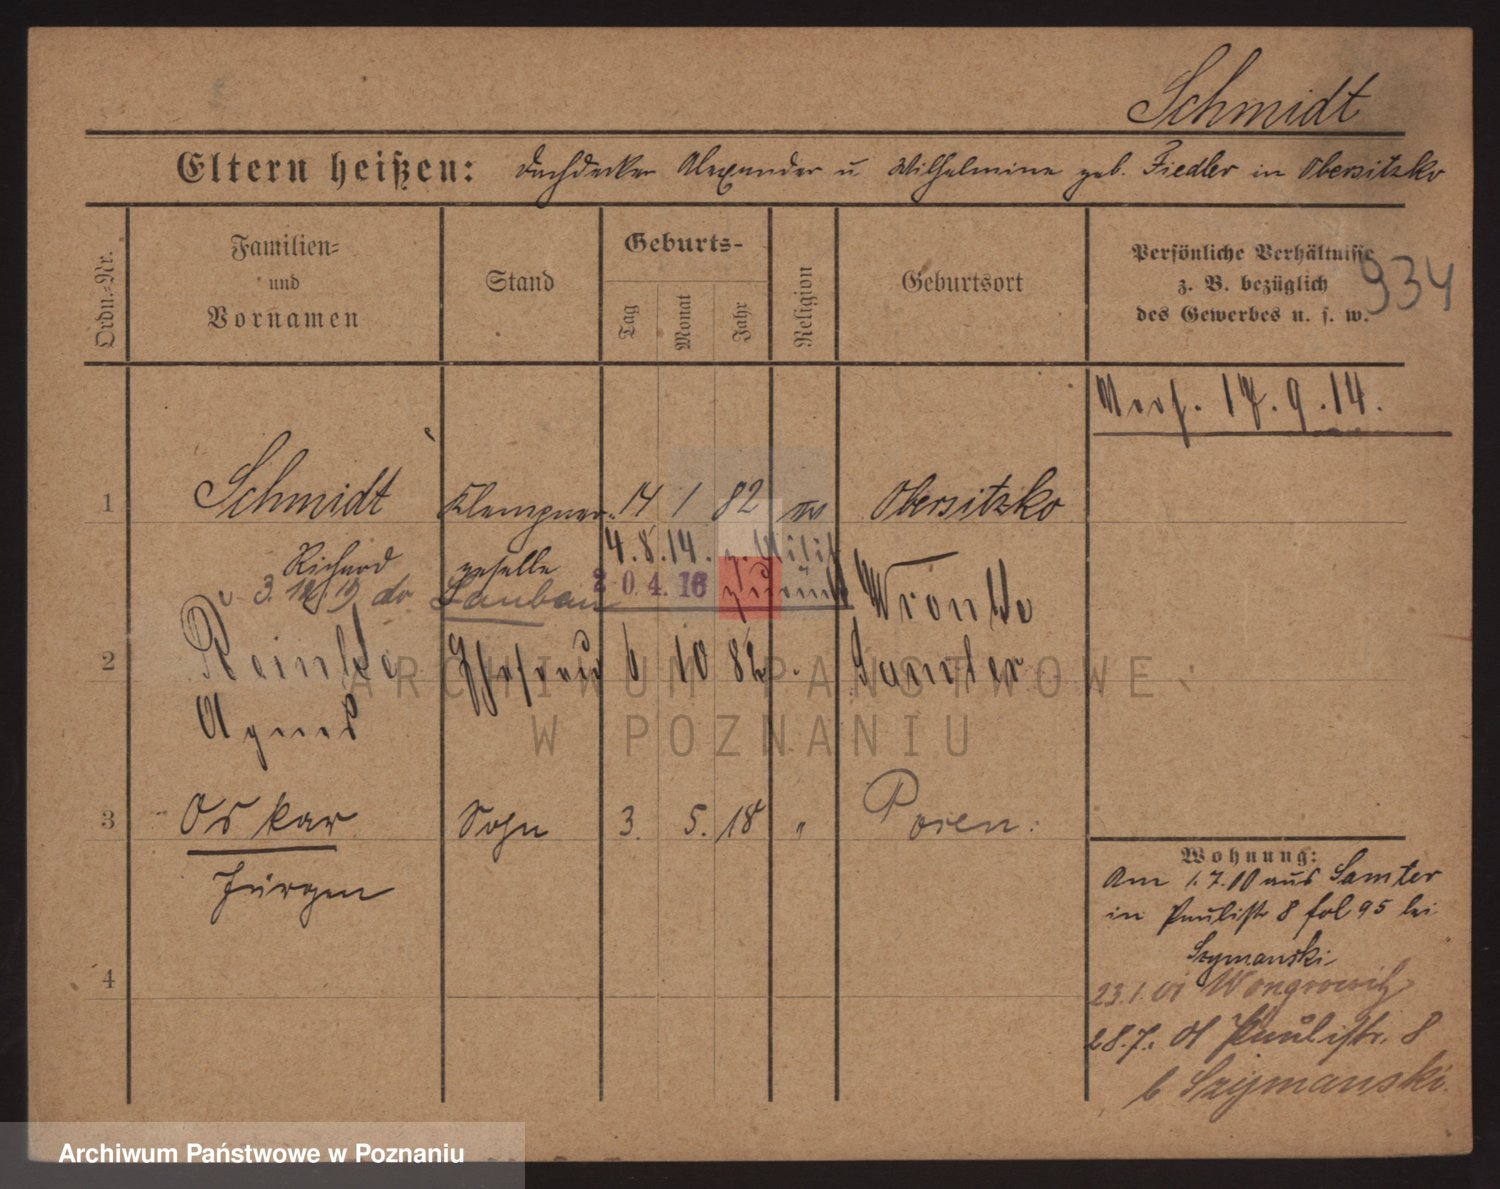 Schmidt
Eltern heißen: Dachdecker Alexander u Wilhelmine geb. Fiedler in Obersitzko
Ordn.-Nr.
Familien-
und
Vornamen
Stand
Geburts-
Tag
Monat
Jahr
Religion
Geburtsort
Persönliche Verhältnisse
z. B. bezüglich
des Gewerbes u. s. w.
934
17.9.14.
1 Schmidt Klempner 14 1 82 Obersitzko
Richard geselle 4.8.14. z. Milit
3. do. Lauban 20.4.16 zurück Wronke
2 Reinke Ehefrau 6 10 82 Samter
Agnes
3 Oskar Sohn 3. 5. 18 " Posen.
Jürgen
4
Wohnung:
Am 1.7.00 aus Samter
in Paulistr 8 fol 95 bei
Szymanski
23.1.01 Wongrowitz
28.7.01 Paulistr. 8
b Szymanski.
ARCHIWUM PAŃSTWOWE
W POZNANIU
Archiwum Państwowe w Poznaniu